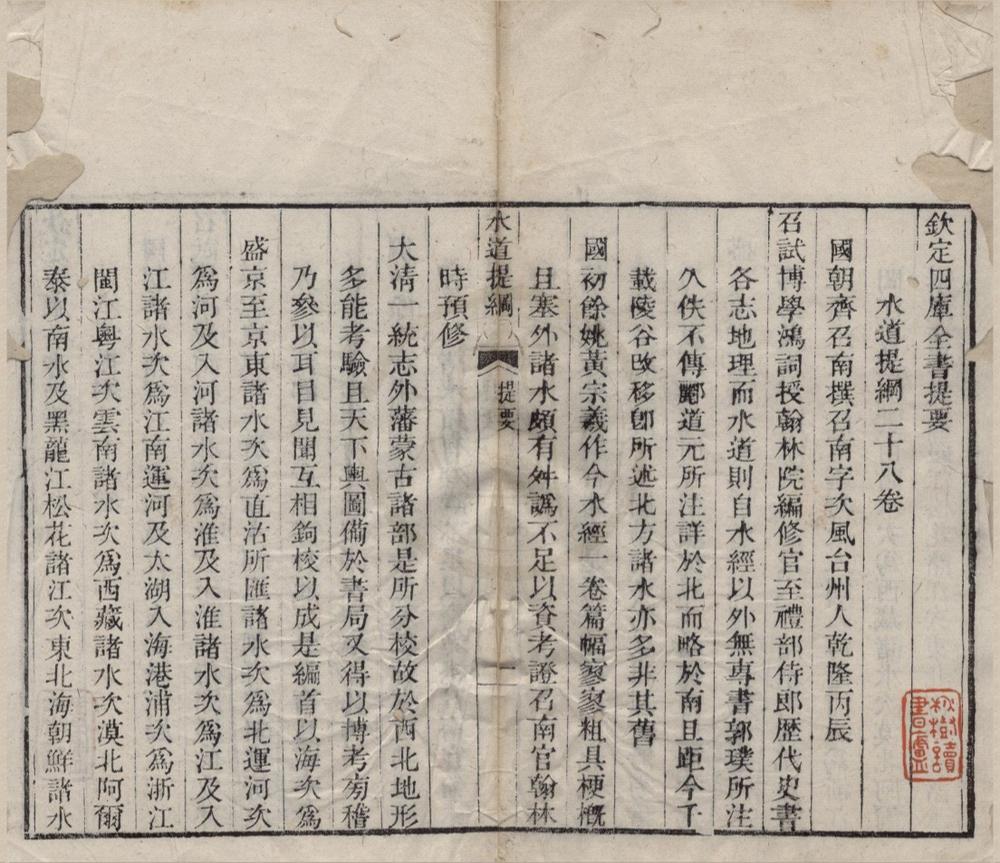 欽定四庫全書提要
水道提綱二十八卷
國朝齊召南撰召南字次風台州人乾隆丙辰
召試博學鴻詞授翰林院編修官至禮部侍郎歷代史書
各志地理而水道則自水經以外無專書郭璞所注
久佚不傳酈道元所注詳於北而略於南且距今千
載陵谷改移卽所述北方諸水亦多非其舊
國初餘姚黃宗羲作今水經一卷篇幅寥寥粗具梗概
且塞外諸水頗有舛譌不足以資考證召南官翰林
水道提綱
提要
一
時預修
大淸一統志外藩蒙古諸部是所分校故於西北地形
多能考驗且天下輿圖備於書局又得以博考旁稽
乃參以耳目見聞互相鉤校以成是編首以海次爲
盛京至京東諸水次爲直沽所匯諸水次爲北運河次
爲河及入河諸水次爲淮及入淮諸水次爲江及入
江諸水次爲江南運河及太湖入海港浦次爲浙江
閩江粵江次雲南諸水次爲西藏諸水次漠北阿爾
泰以南水及黑龍江松花諸江次東北海朝鮮諸水
秋樹讀書廬